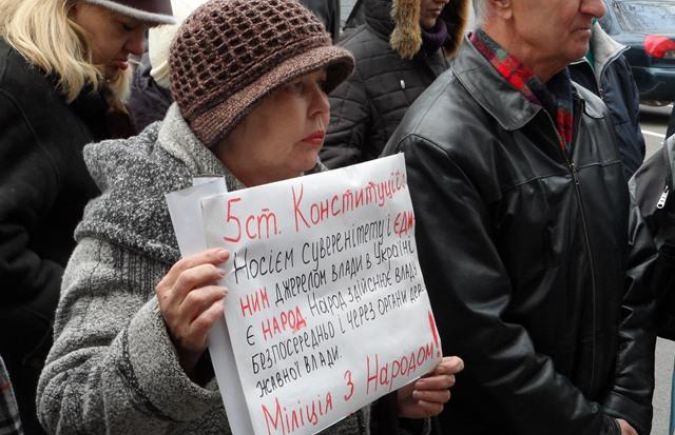 5ст. Конституції
Носієм суверенітету і ЄДИ-
НИМ джерелом влади в Україні
є НАРОД. Народ здійснює владу
безпосередньо і через органи дер-
жавної влади.
Міліція з Народом!